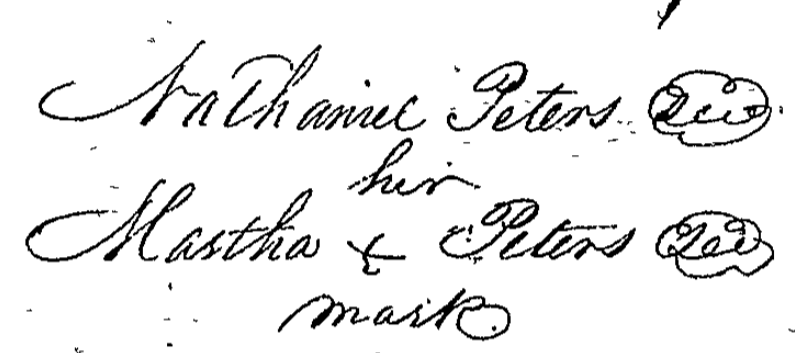 Nathaniel Peters Seal
her
Martha x Peters Seal
mark.